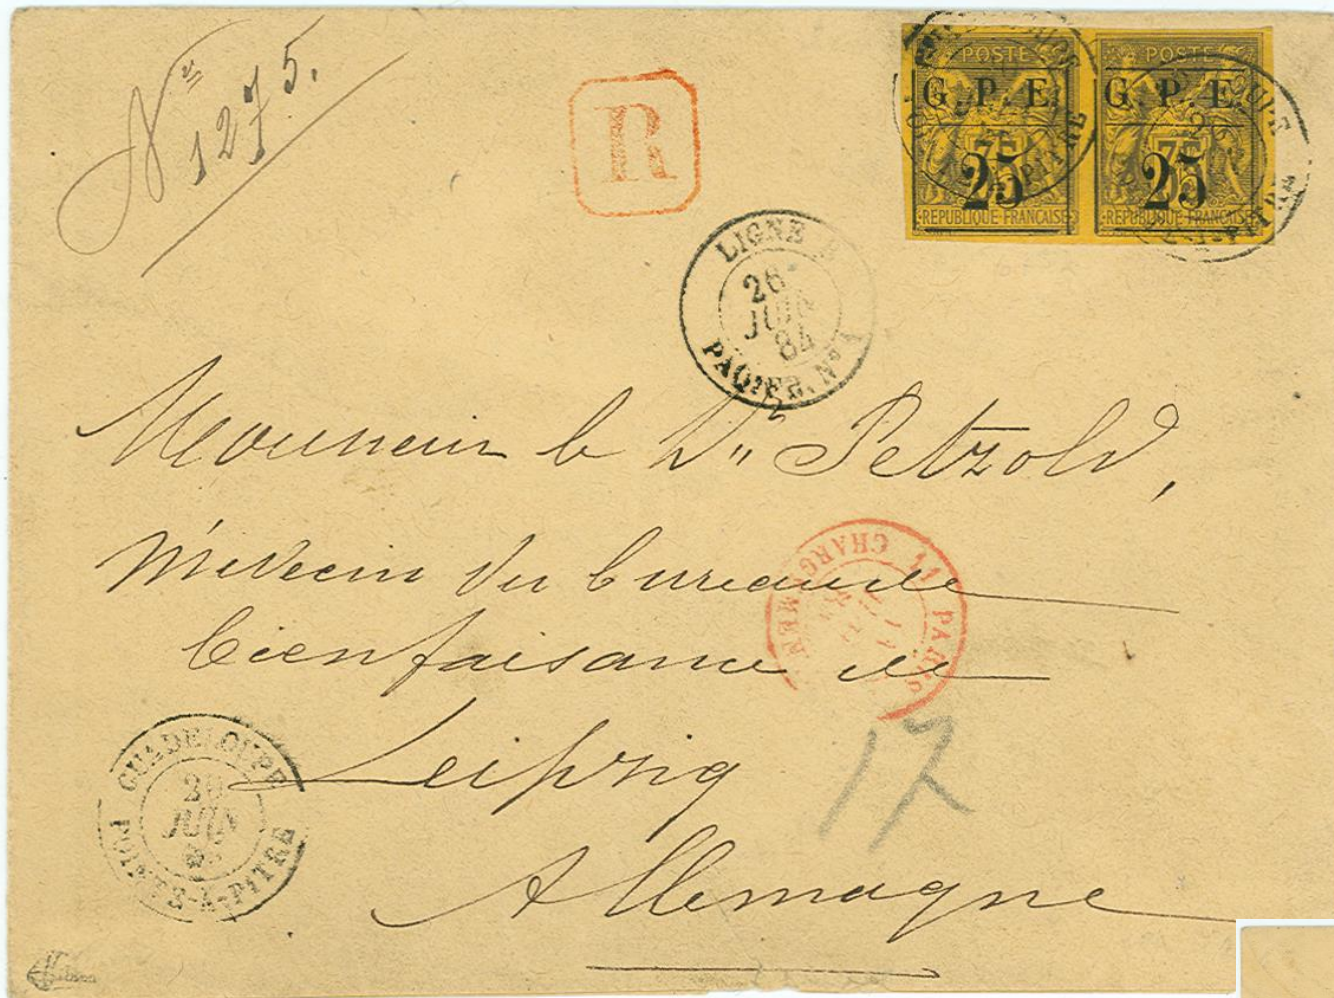 Nº 1275.
R
POSTE
G. P. E.
25
REPUBLIQUE FRANCAISE
POSTE
G. P. E.
25
REPUBLIQUE FRANCAISE
LIGNE B
26
JUIN
84
PAQ. FR. Nº 1
Monsieur le Dr. Petzold,
Médecin du bureau de
bienfaisance de
Leipzig
Allemagne
PARIS
CHARGEMENT
17
GUADELOUPE
JUIN
POINTE-À-PITRE